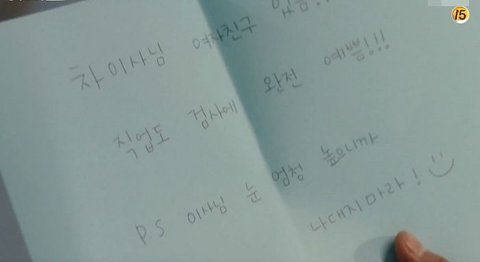 15
차이사님 여자친구 있음!!
직업도 검사에 완전 예쁨!!!
PS 이사님 눈 엄청 높으니까
나대지마라!